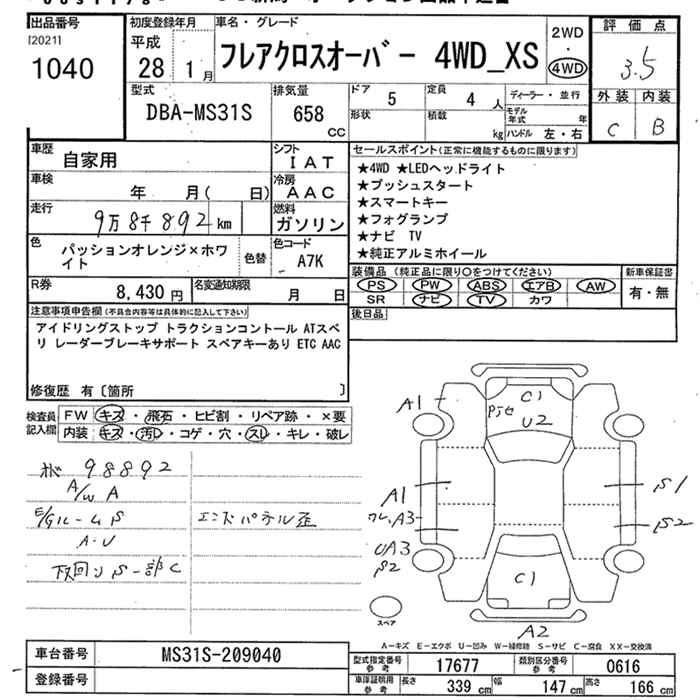 出品番号
[2021]
1040
初度登録年月
平成
28 1月
車名・グレード
フレアクロスオーバー 4WD_XS
2WD
・
4WD
評価点
3.5
外装 内装
C B
型式
DBA-MS31S
排気量
658
CC
ドア
5
定員
4 人
形状
積載
kg
ディーラー・並行
モデル年式 年
ハンドル 左・右
車歴
自家用
シフト
IAT
車検
年 月( 日)
冷房
AAC
走行
9万8千892km
燃料
ガソリン
色
パッションオレンジ×ホワイト
色替
色コード
A7K
R券
8,430円
名変通知期限
月 日
セールスポイント(正常に機能するものに限ります)
★4WD ★LEDヘッドライト
★プッシュスタート
★スマートキー
★フォグランプ
★ナビ TV
★純正アルミホイール
装備品 (純正品に限り○をつけてください)
PS PW ABS エアB AW
SR ナビ TV カワ
新車保証書
有・無
後日品
注意事項申告欄(不具合内容等は具体的に記入して下さい)
アイドリングストップ トラクションコントロール ATスペ
リ レーダーブレーキサポート スペアキーあり ETC AAC
修復歴 有〔箇所 〕
検査員記入欄
FW キズ・飛石・ヒビ割・リペア跡・×要
内装 キズ・汚レ・コゲ・穴・スレ・キレ・破レ
98892
A/W A
E/Gルーム S
A・U
下回りS-部C
エンドパネル歪
A1
C1
U2
A1
A3
UA3
S2
S1
S2
C1
A2
スペア
A-キズ E-エクボ U-凹み W-補修跡 S-サビ C-腐食 XX-交換済
車台番号
MS31S-209040
登録番号
型式指定番号
参考
17677
類別区分番号
参考
0616
車庫証明用
参考
長さ
339 cm
幅
147 cm
高さ
166 cm